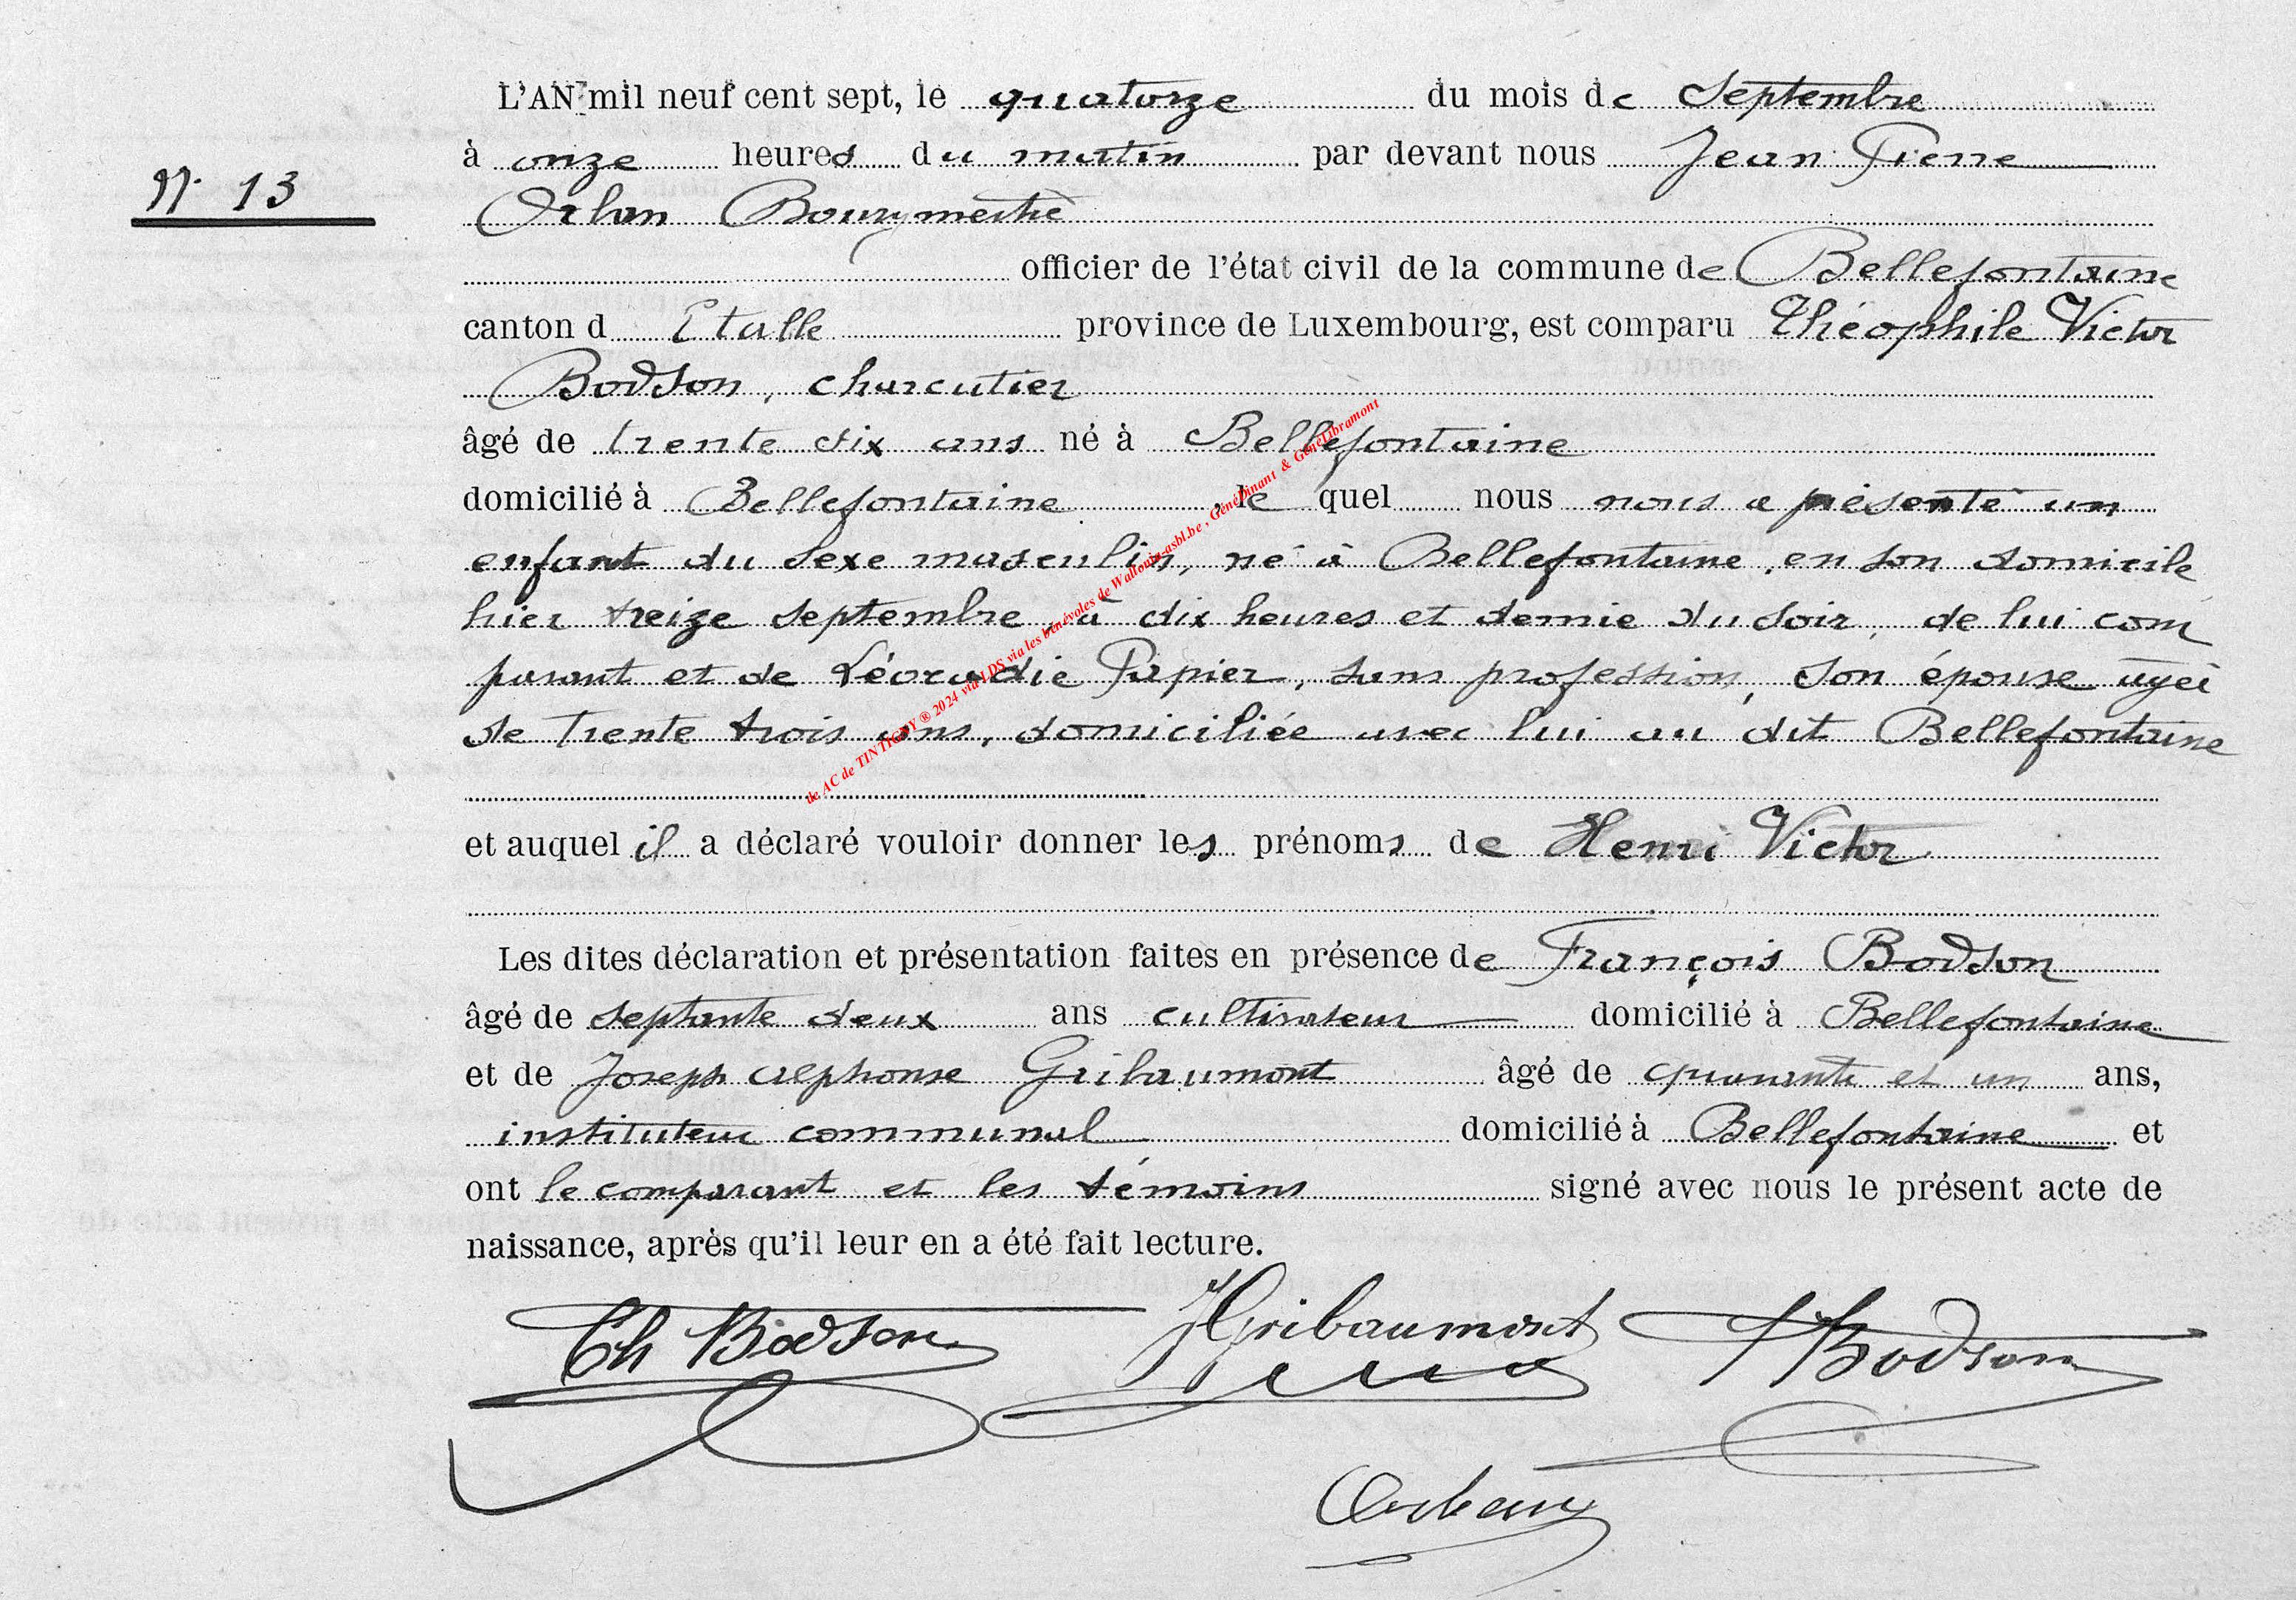 L'AN mil neuf cent sept, le quatorze du mois de Septembre
à onze heures du matin par devant nous Jean Pierre
N. 13
Orban Bourgmestre
officier de l'état civil de la commune de Bellefontaine
canton d Etalle province de Luxembourg, est comparu Théophile Victor
Bodson, charcutier
âgé de trente six ans né à Bellefontaine
domicilié à Bellefontaine, le quel nous nous a présenté un
enfant du sexe masculin, né à Bellefontaine, en son domicile
hier treize septembre, à dix heures et demie du soir, de lui com
parant et de Léocadie Papier, sans profession, son épouse âgée
de trente trois ans, domiciliée avec lui au dit Bellefontaine
et auquel il a déclaré vouloir donner les prénoms de Henri Victor
Les dites déclaration et présentation faites en présence de François Bodson
âgé de septante deux ans cultivateur domicilié à Bellefontaine
et de Joseph Alphonse Gribaumont âgé de quarante et un ans,
instituteur communal domicilié à Bellefontaine et
ont le comparant et les témoins signé avec nous le présent acte de
naissance, après qu'il leur en a été fait lecture.
Th Bodson JGribaumont F Bodson
Orban
de AC de TINTIGNY ® 2024 via LDS via les bénévoles de Wallonia-asbl.be, GénéDinant & GénéLibramont